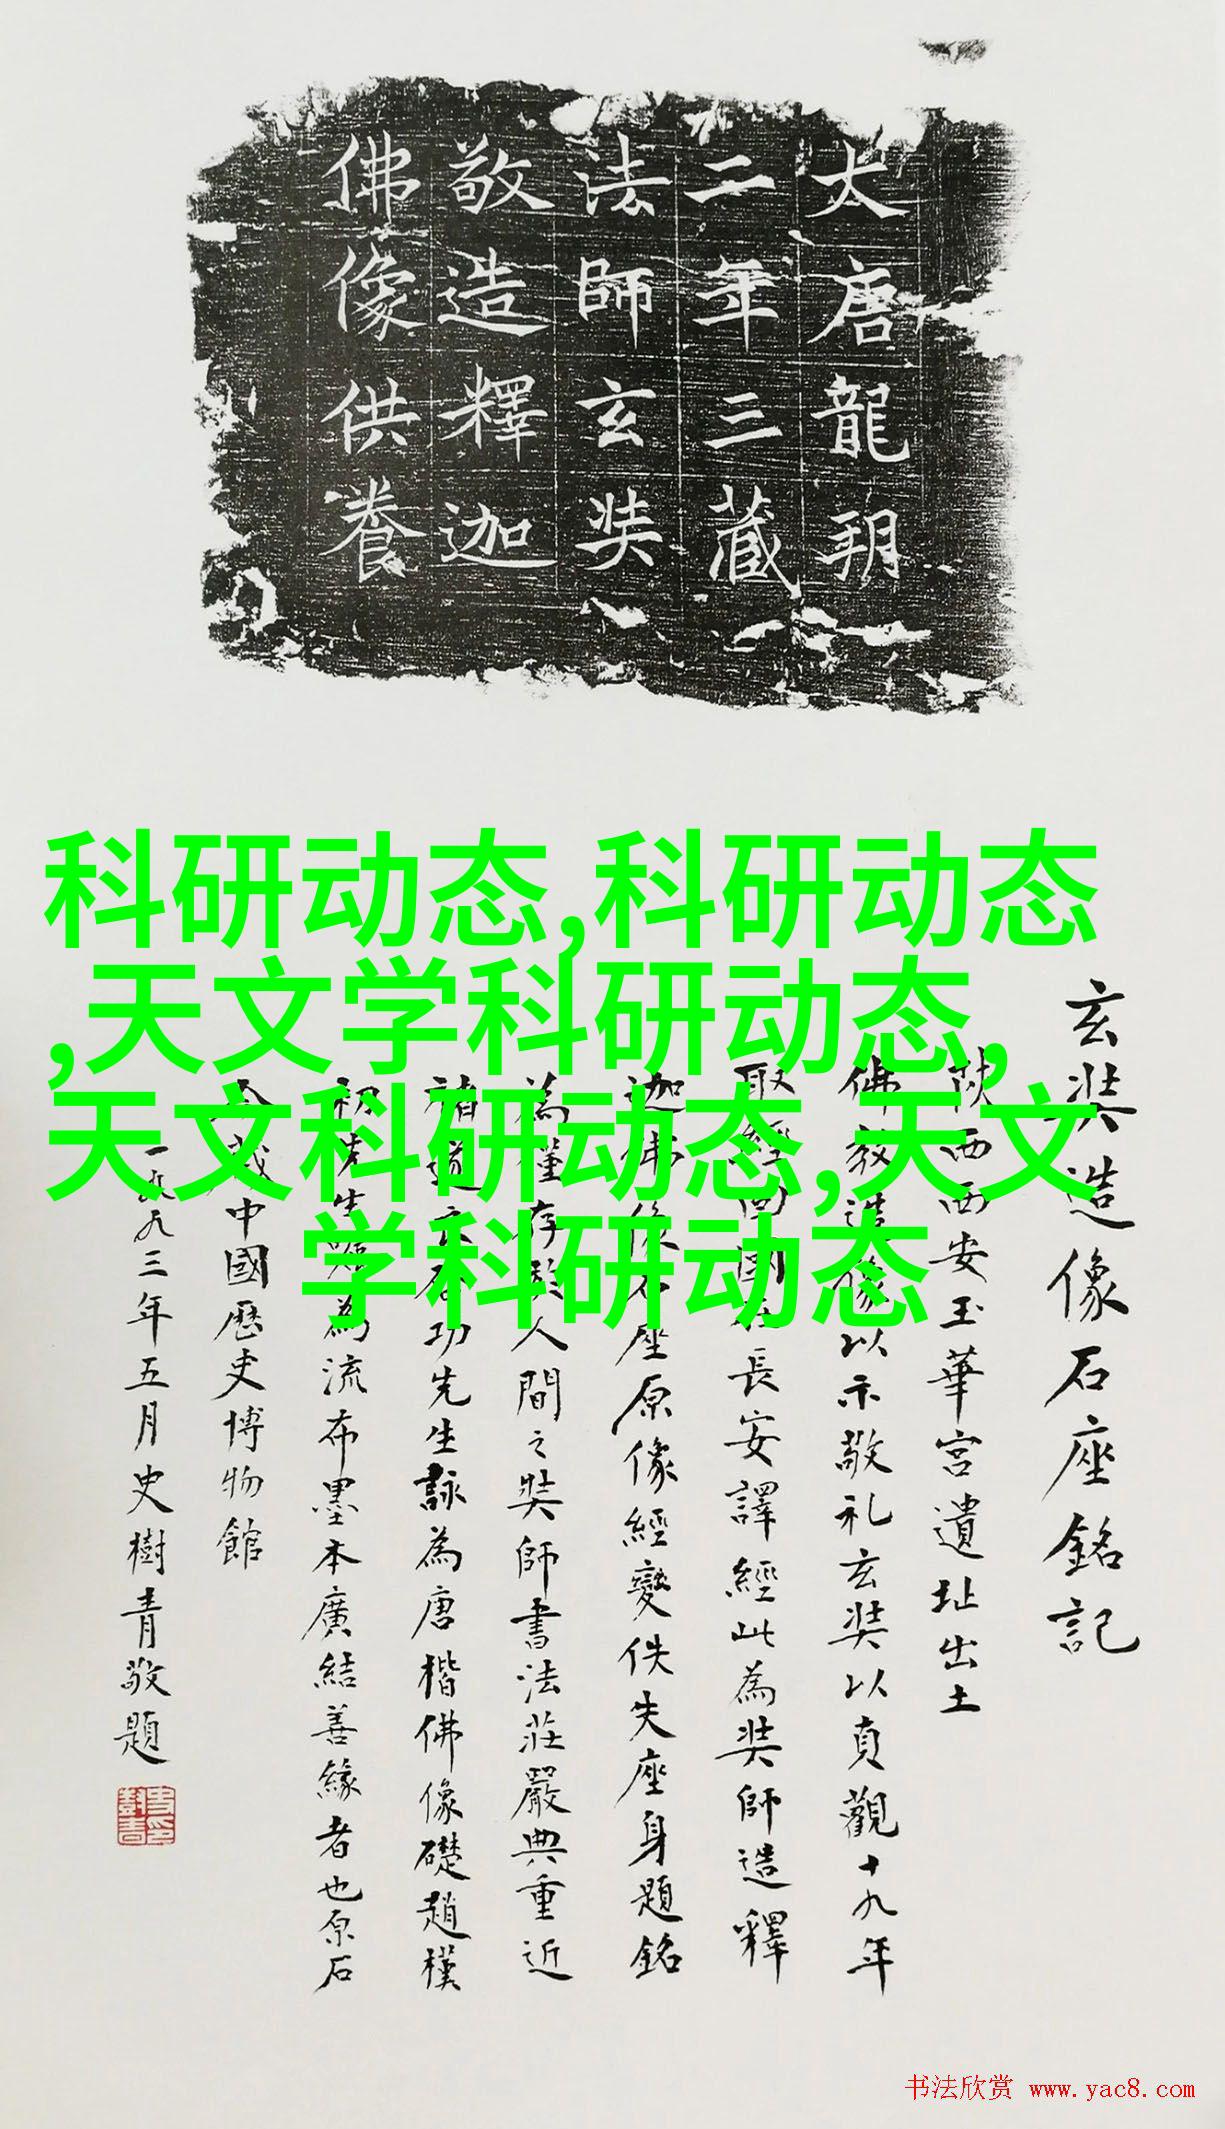 大唐龍朔
二年三藏
法師玄奘
敬造釋迦
佛像供養
科研动态,科研动态
,天文学科研动态,
天文科研动态,天文
学科研动态
玄奘造像石座銘記
陕西西安玉華宮遺址出土
佛教造像以示敬礼玄奘以貞觀十九年
取經回國在長安譯經此為奘師造釋
迦佛像石座原像經變佚失座身題銘
為僅存於人間之奘師書法莊嚴典重近
諸道友啓功先生詠為唐楷佛像礎趙樸
初先生題為流布墨本廣結善緣者也原石
今藏中國歷史博物館
一九九三年五月史樹青敬題
书法欣赏 www.yac8.com